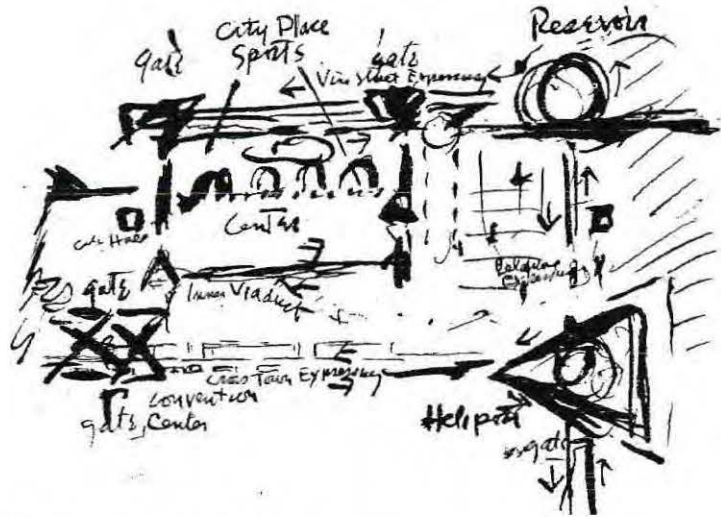 City Place
Sports
Reservoir
gate
gate
Vine Street Expressway
Center
City Hall
gate
Inner Viaduct
Cross Town Expressway
Convention
Center
gate
Heliport
gate